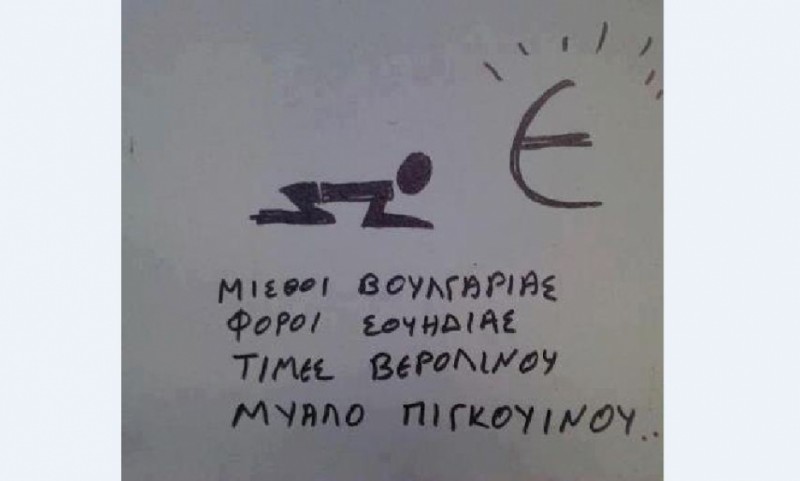 ΜΙΣΘΟΙ ΒΟΥΛΓΑΡΙΑΣ
ΦΟΡΟΙ ΣΟΥΗΔΙΑΣ
ΤΙΜΕΣ ΒΕΡΟΛΙΝΟΥ
ΜΥΑΛΟ ΠΙΓΚΟΥΙΝΟΥ..